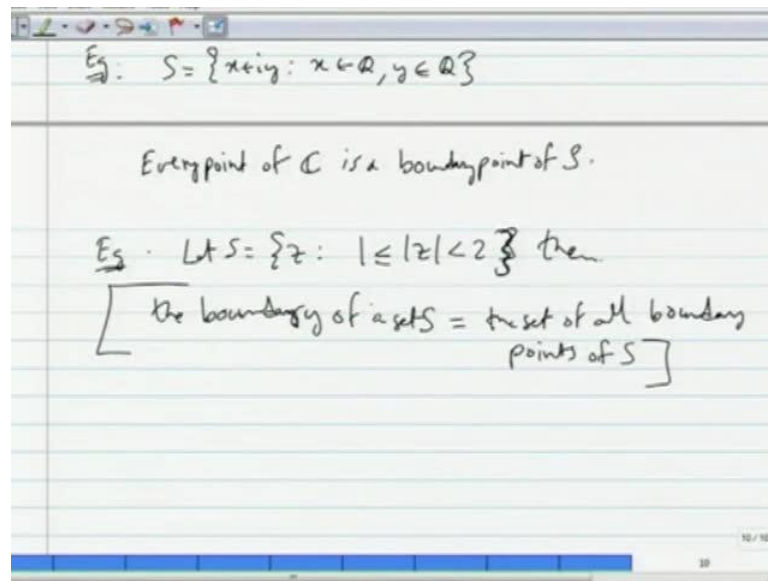 Eg: S = {x+iy : x ∈ Q, y ∈ Q}
Every point of ℂ is a boundary point of S.
Eg. Let S = {z : 1 ≤ |z| < 2} then
[the boundary of a set S = the set of all boundary
points of S]
10 / 10
10